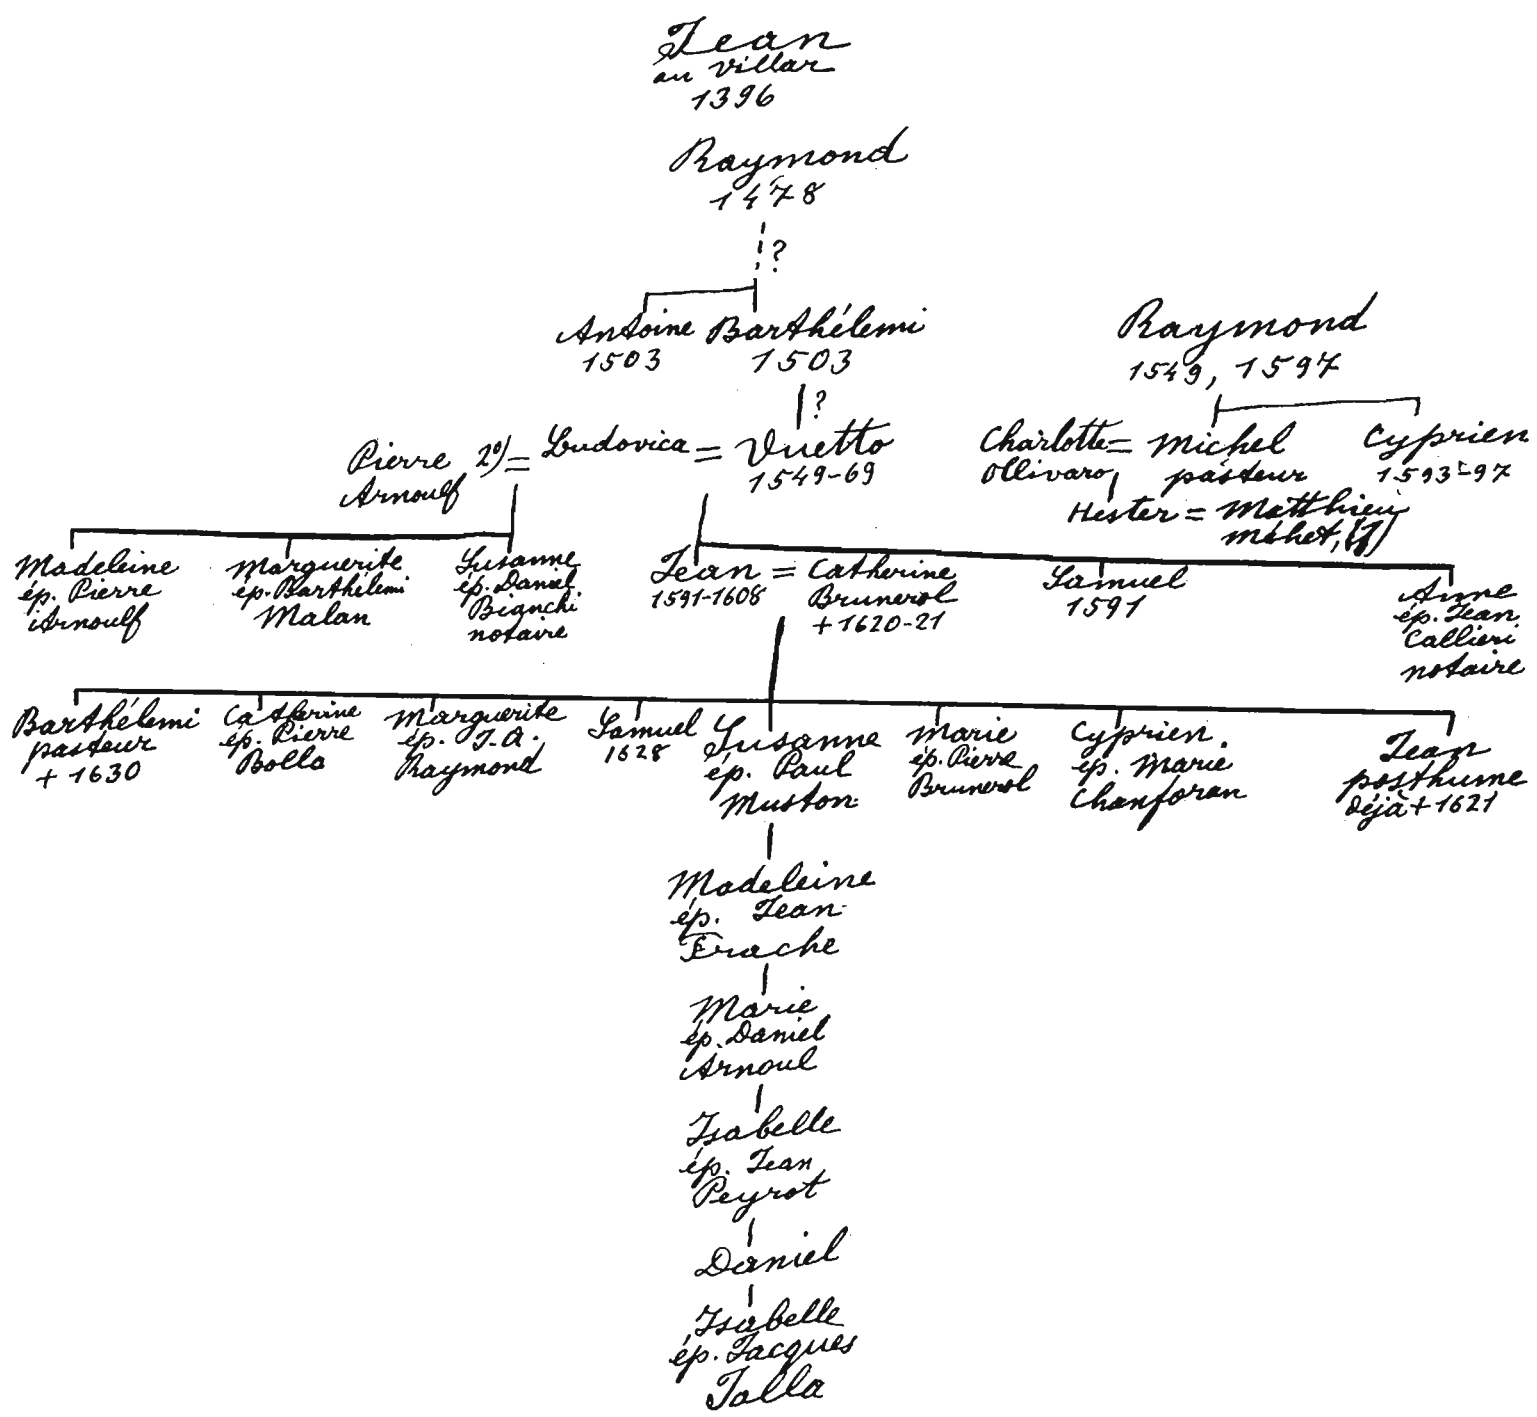 Jean
au Villar
1396
Raymond
1478
?
Antoine
1503
Barthélemi
1503
?
Raymond
1549, 1597
Pierre 2º) =
Arnoulf
Ludovica =
Vuetto
1549-69
Charlotte =
Ollivaro
Michel
pasteur
Cyprien
1593-97
Hester = Matthieu
Madeleine
ép. Pierre
Arnoulf
Marguerite
ép. Barthélemi
Malan
Susanne
ép. Daniel
Bianchi
notaire
Jean =
1591-1608
Catherine
Brunerol
+ 1620-21
Samuel
1591
Anne
ép. Jean
Callieri
notaire
Barthélemi
pasteur
+ 1630
Catherine
ép. Pierre
Bolla
Marguerite
ép. J.A.
Raymond
Samuel
1628
Susanne
ép. Paul
Muston
Marie
ép. Pierre
Brunerol
Cyprien
ép. Marie
Chanforan
Jean
posthume
déjà + 1621
Madeleine
ép. Jean
Frache
Marie
ép. Daniel
Arnoul
Isabelle
ép. Jean
Peyrot
Daniel
Isabelle
ép. Jacques
Jalla